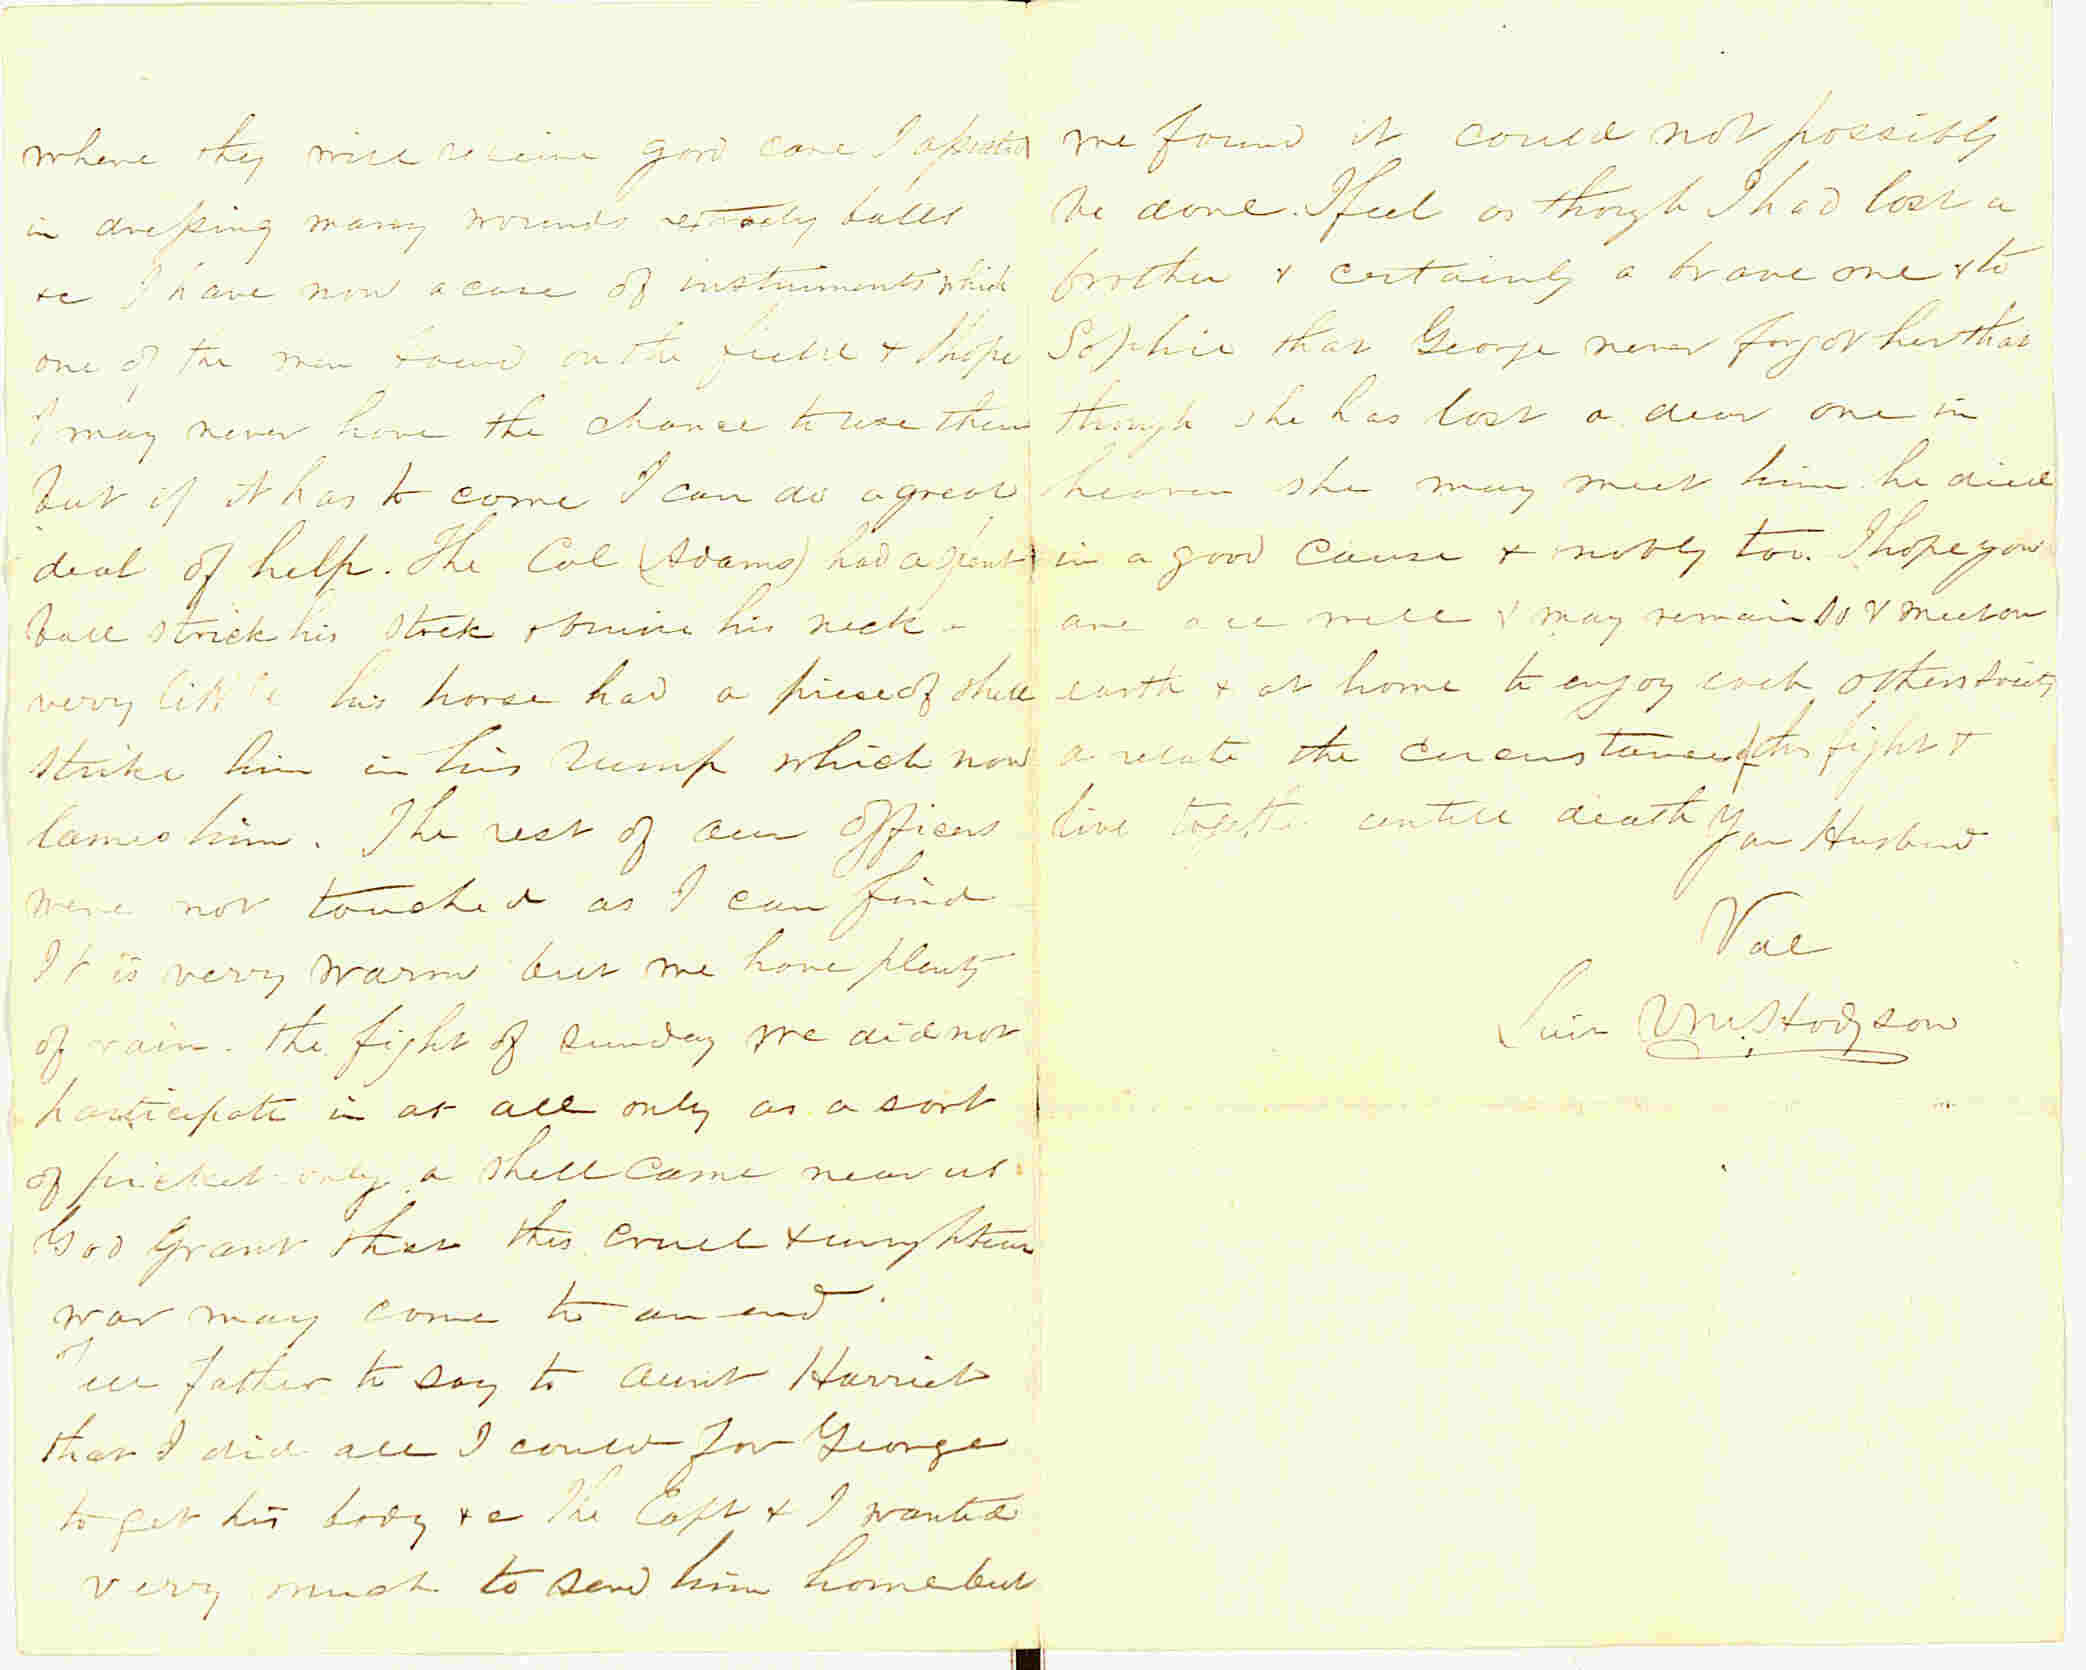 where they will receive good care I assisted
in dressing many wounds extracting balls
&c I have now a case of instruments which
one of the men found on the field & I hope
I may never have the chance to use them
but if it has to come I can do a great
deal of help. The Col (Adams) had a spent
ball strick his stock & bruise his neck a
verry little his horse had a piece of shell
strike him in his rump which now
lames him. The rest of our officers
were not touched as I can find
It is verry warm but we have plenty
of rain. the fight of sunday we did not
participate in at all only as a sort
of picket only a shell came near us
God Grant that this cruel &
war may come to an end.
Tell father to say to aunt Harriet
that I did all I could for George
to get his body &c The Capt & I wanted
verry much to send him home but
we found it could not possibly
be done. I feel as though I had lost a
brother & certainly a brave one & to
Sophie that George never forgot her that
though she has lost a dear one in
heaven she may meet him he died
in a good cause & nobly too. I hope you
are all well & may remain so & meet on
earth & at home to enjoy each others society
a relate the circumstances of this fight &
live together untill death Your Husband
Val
Lieu VM. Hodgson